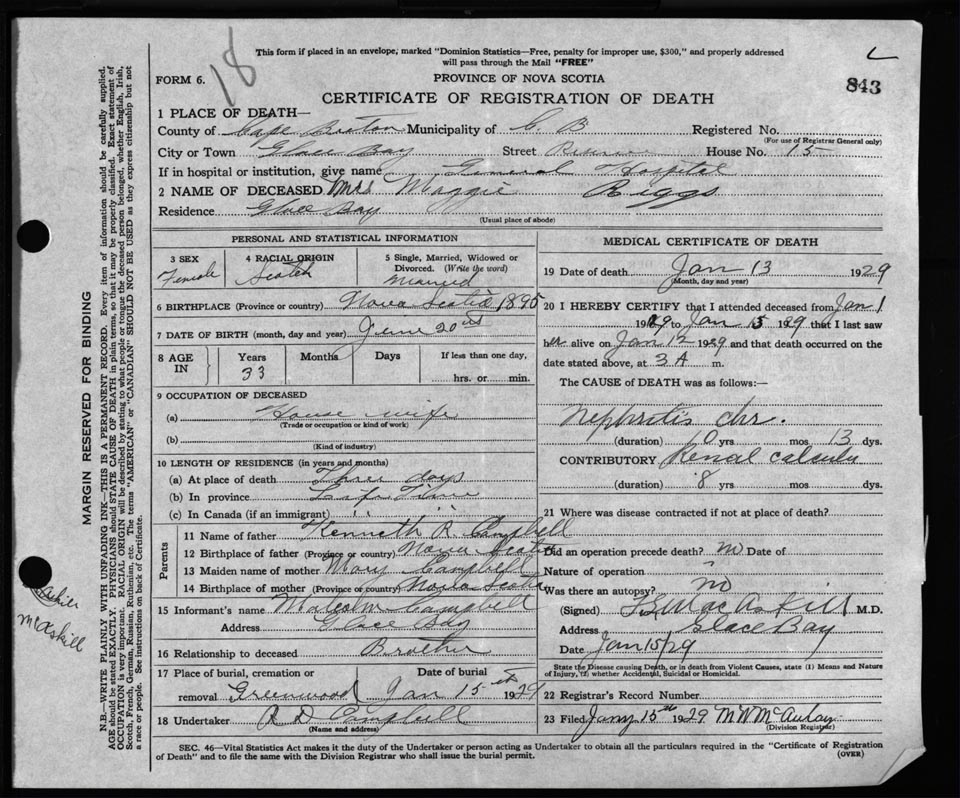 18
This form if placed in an envelope, marked "Dominion Statistics—Free, penalty for improper use, $300," and properly addressed
will pass through the Mail "FREE"
FORM 6.
PROVINCE OF NOVA SCOTIA
843
CERTIFICATE OF REGISTRATION OF DEATH
1 PLACE OF DEATH—
County of Cape Breton Municipality of C. B Registered No.
(For use of Registrar General only)
City or Town Glace Bay Street Reserve House No. 15
If in hospital or institution, give name General Hospital
2 NAME OF DECEASED Mrs Maggie Riggs
Residence Glace Bay
(Usual place of abode)
PERSONAL AND STATISTICAL INFORMATION
3 SEX
Female
4 RACIAL ORIGIN
Scotch
5 Single, Married, Widowed or
Divorced. (Write the word)
Married
6 BIRTHPLACE (Province or country) Nova Scotia 1895
7 DATE OF BIRTH (month, day and year) June 20
8 AGE
IN
Years
33
Months
Days
If less than one day,
hrs. or min.
9 OCCUPATION OF DECEASED
(a) House wife
(Trade or occupation or kind of work)
(b)
(Kind of industry)
10 LENGTH OF RESIDENCE (in years and months)
(a) At place of death Three days
(b) In province Life Time
(c) In Canada (if an immigrant) " "
Parents
11 Name of father Kenneth R. Campbell
12 Birthplace of father (Province or country) Nova Scotia
13 Maiden name of mother Mary Campbell
14 Birthplace of mother (Province or country) Nova Scotia
15 Informant's name Malcolm Campbell
Address Glace Bay
16 Relationship to deceased Brother
17 Place of burial, cremation or
removal Greenwood
Date of burial
Jan 15 1929
18 Undertaker A D Campbell
(Name and address)
MEDICAL CERTIFICATE OF DEATH
19 Date of death Jan 13 1929
(Month, day and year)
20 I HEREBY CERTIFY that I attended deceased from Jan 1
1929 to Jan 13 1929 that I last saw
her alive on Jan 12 1929 and that death occurred on the
date stated above, at 3 A m.
The CAUSE of DEATH was as follows:—
Nephritis chr.
(duration) 0 yrs mos 13 dys.
CONTRIBUTORY Renal calculi
(duration) 8 yrs mos dys.
21 Where was disease contracted if not at place of death?
Did an operation precede death? no Date of
Nature of operation
Was there an autopsy? no
(Signed) MacAskill M.D.
Address Glace Bay
Date Jan 15/29
State the Disease causing Death, or in death from Violent Causes, state (1) Means and Nature
of Injury, (2) whether Accidental, Suicidal or Homicidal.
22 Registrar's Record Number
23 Filed Jany 15th 1929 M W McAulay
(Division Registrar)
SEC. 46—Vital Statistics Act makes it the duty of the Undertaker or person acting as Undertaker to obtain all the particulars required in the "Certificate of Registration
of Death" and to file the same with the Division Registrar who shall issue the burial permit.
(OVER)
MARGIN RESERVED FOR BINDING
N.B.—WRITE PLAINLY WITH UNFADING INK—THIS IS A PERMANENT RECORD. Every item of information should be carefully supplied.
AGE should be stated EXACTLY. PHYSICIANS should STATE CAUSE OF DEATH in plain terms, so that it may be properly classified. Exact statement of
OCCUPATION is very important. RACIAL ORIGIN will be described by stating to what people or tongue the deceased person belonged, whether English, Irish,
Scotch, French, German, Russian, Ruthenian, etc. The terms "AMERICAN" or "CANADIAN" SHOULD NOT BE USED as they express citizenship but not
a race or people. See instructions on back of Certificate.
McAskill